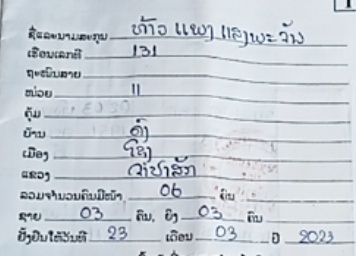 ຊື່ແລະນາມສະກຸນ ທ້າວ ແພງ ແສງພະຈັນ
ເຮືອນເລກທີ 131
ຖະໜົນສາຍ
ໜ່ວຍ 11
ຄຸ້ມ
ບ້ານ
ເມືອງ
ແຂວງ ຈຳປາສັກ
ລວມຈຳນວນຄົນມີໜ້າ 06 ຄົນ
ຊາຍ 03 ຄົນ, ຍິງ 03 ຄົນ
ຢັ້ງຢືນໃຫ້ວັນທີ 23 ເດືອນ 03 ປີ 2023